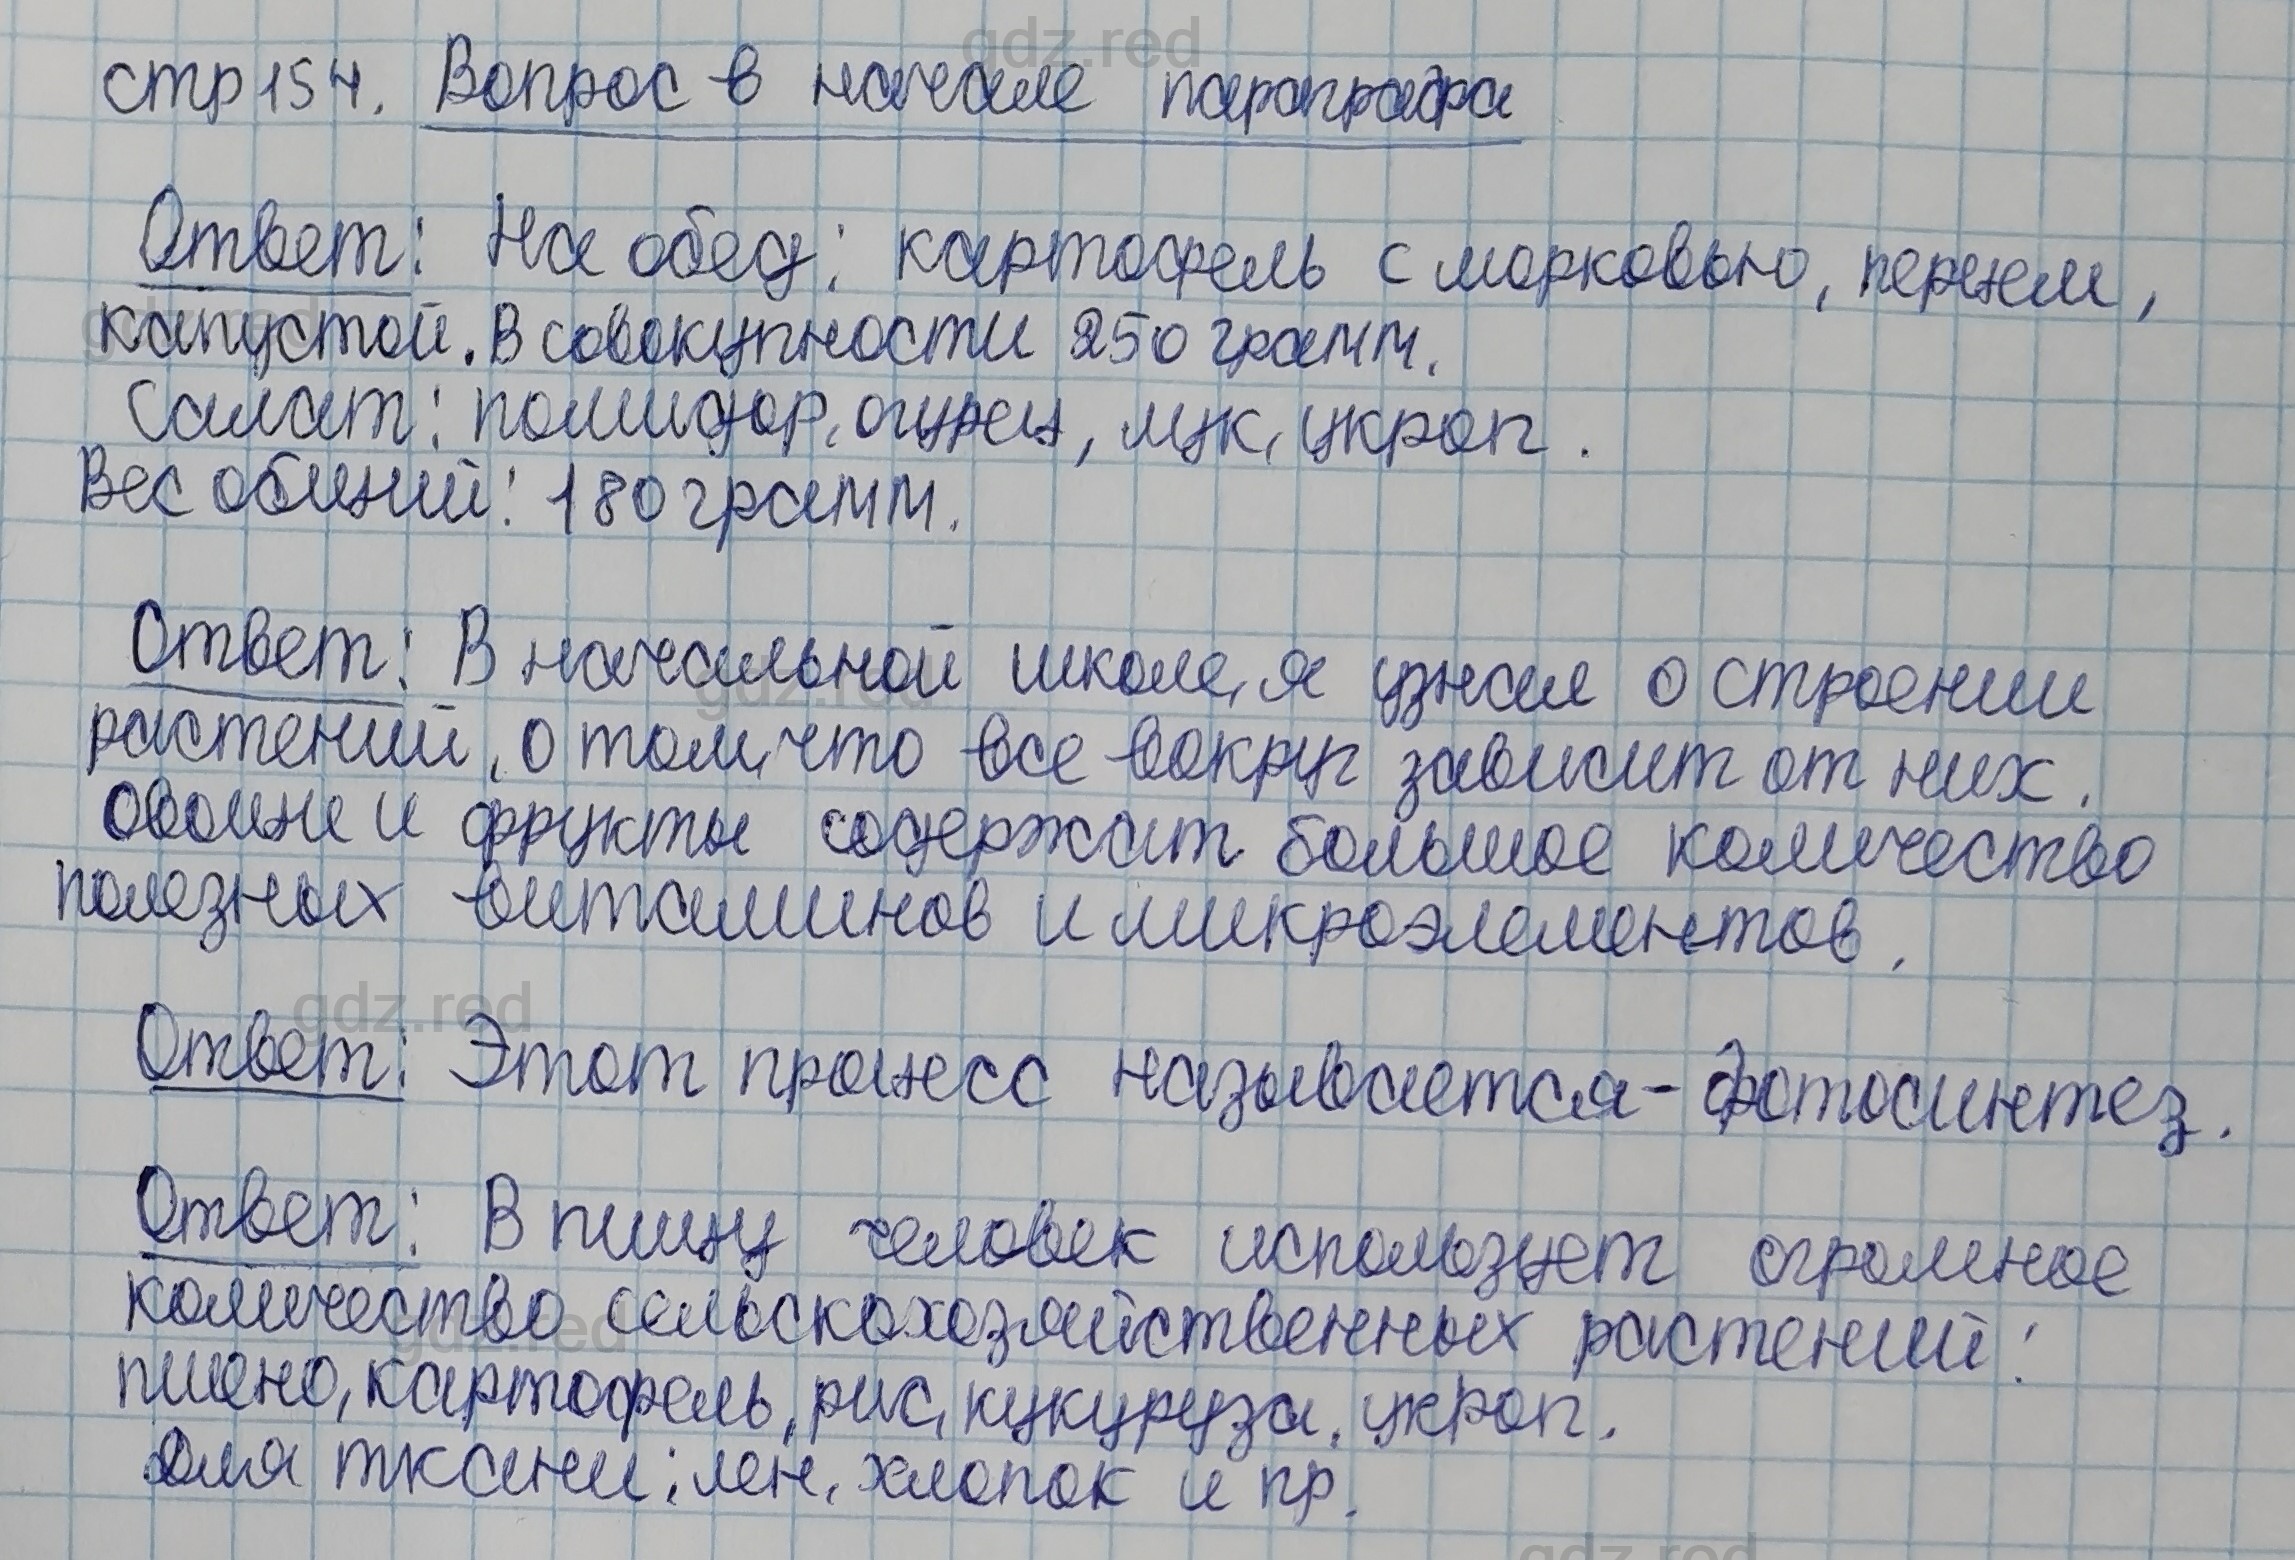 gdz.red
стр 154. Вопрос в начале параграфа
Ответ: На обед: картофель с морковью, перцем,
gdz.red
капустой. В совокупности 250 грамм.
Салат: помидор, огурец, лук, укроп.
Вес общий: 180 грамм.
Ответ: В начальной школе, я узнал о строении
gdz.red
растений, о том, что все вокруг зависит от них.
Овощи и фрукты содержат большое количество
полезных витаминов и микроэлементов.
gdz.red
Ответ: Этот процесс называется - фотосинтез.
Ответ: В пищу человек использует огромное
количество сельскохозяйственных растений:
gdz.red
пшено, картофель, рис, кукуруза, укроп.
Для ткани: лен, хлопок и пр.
gdz.red